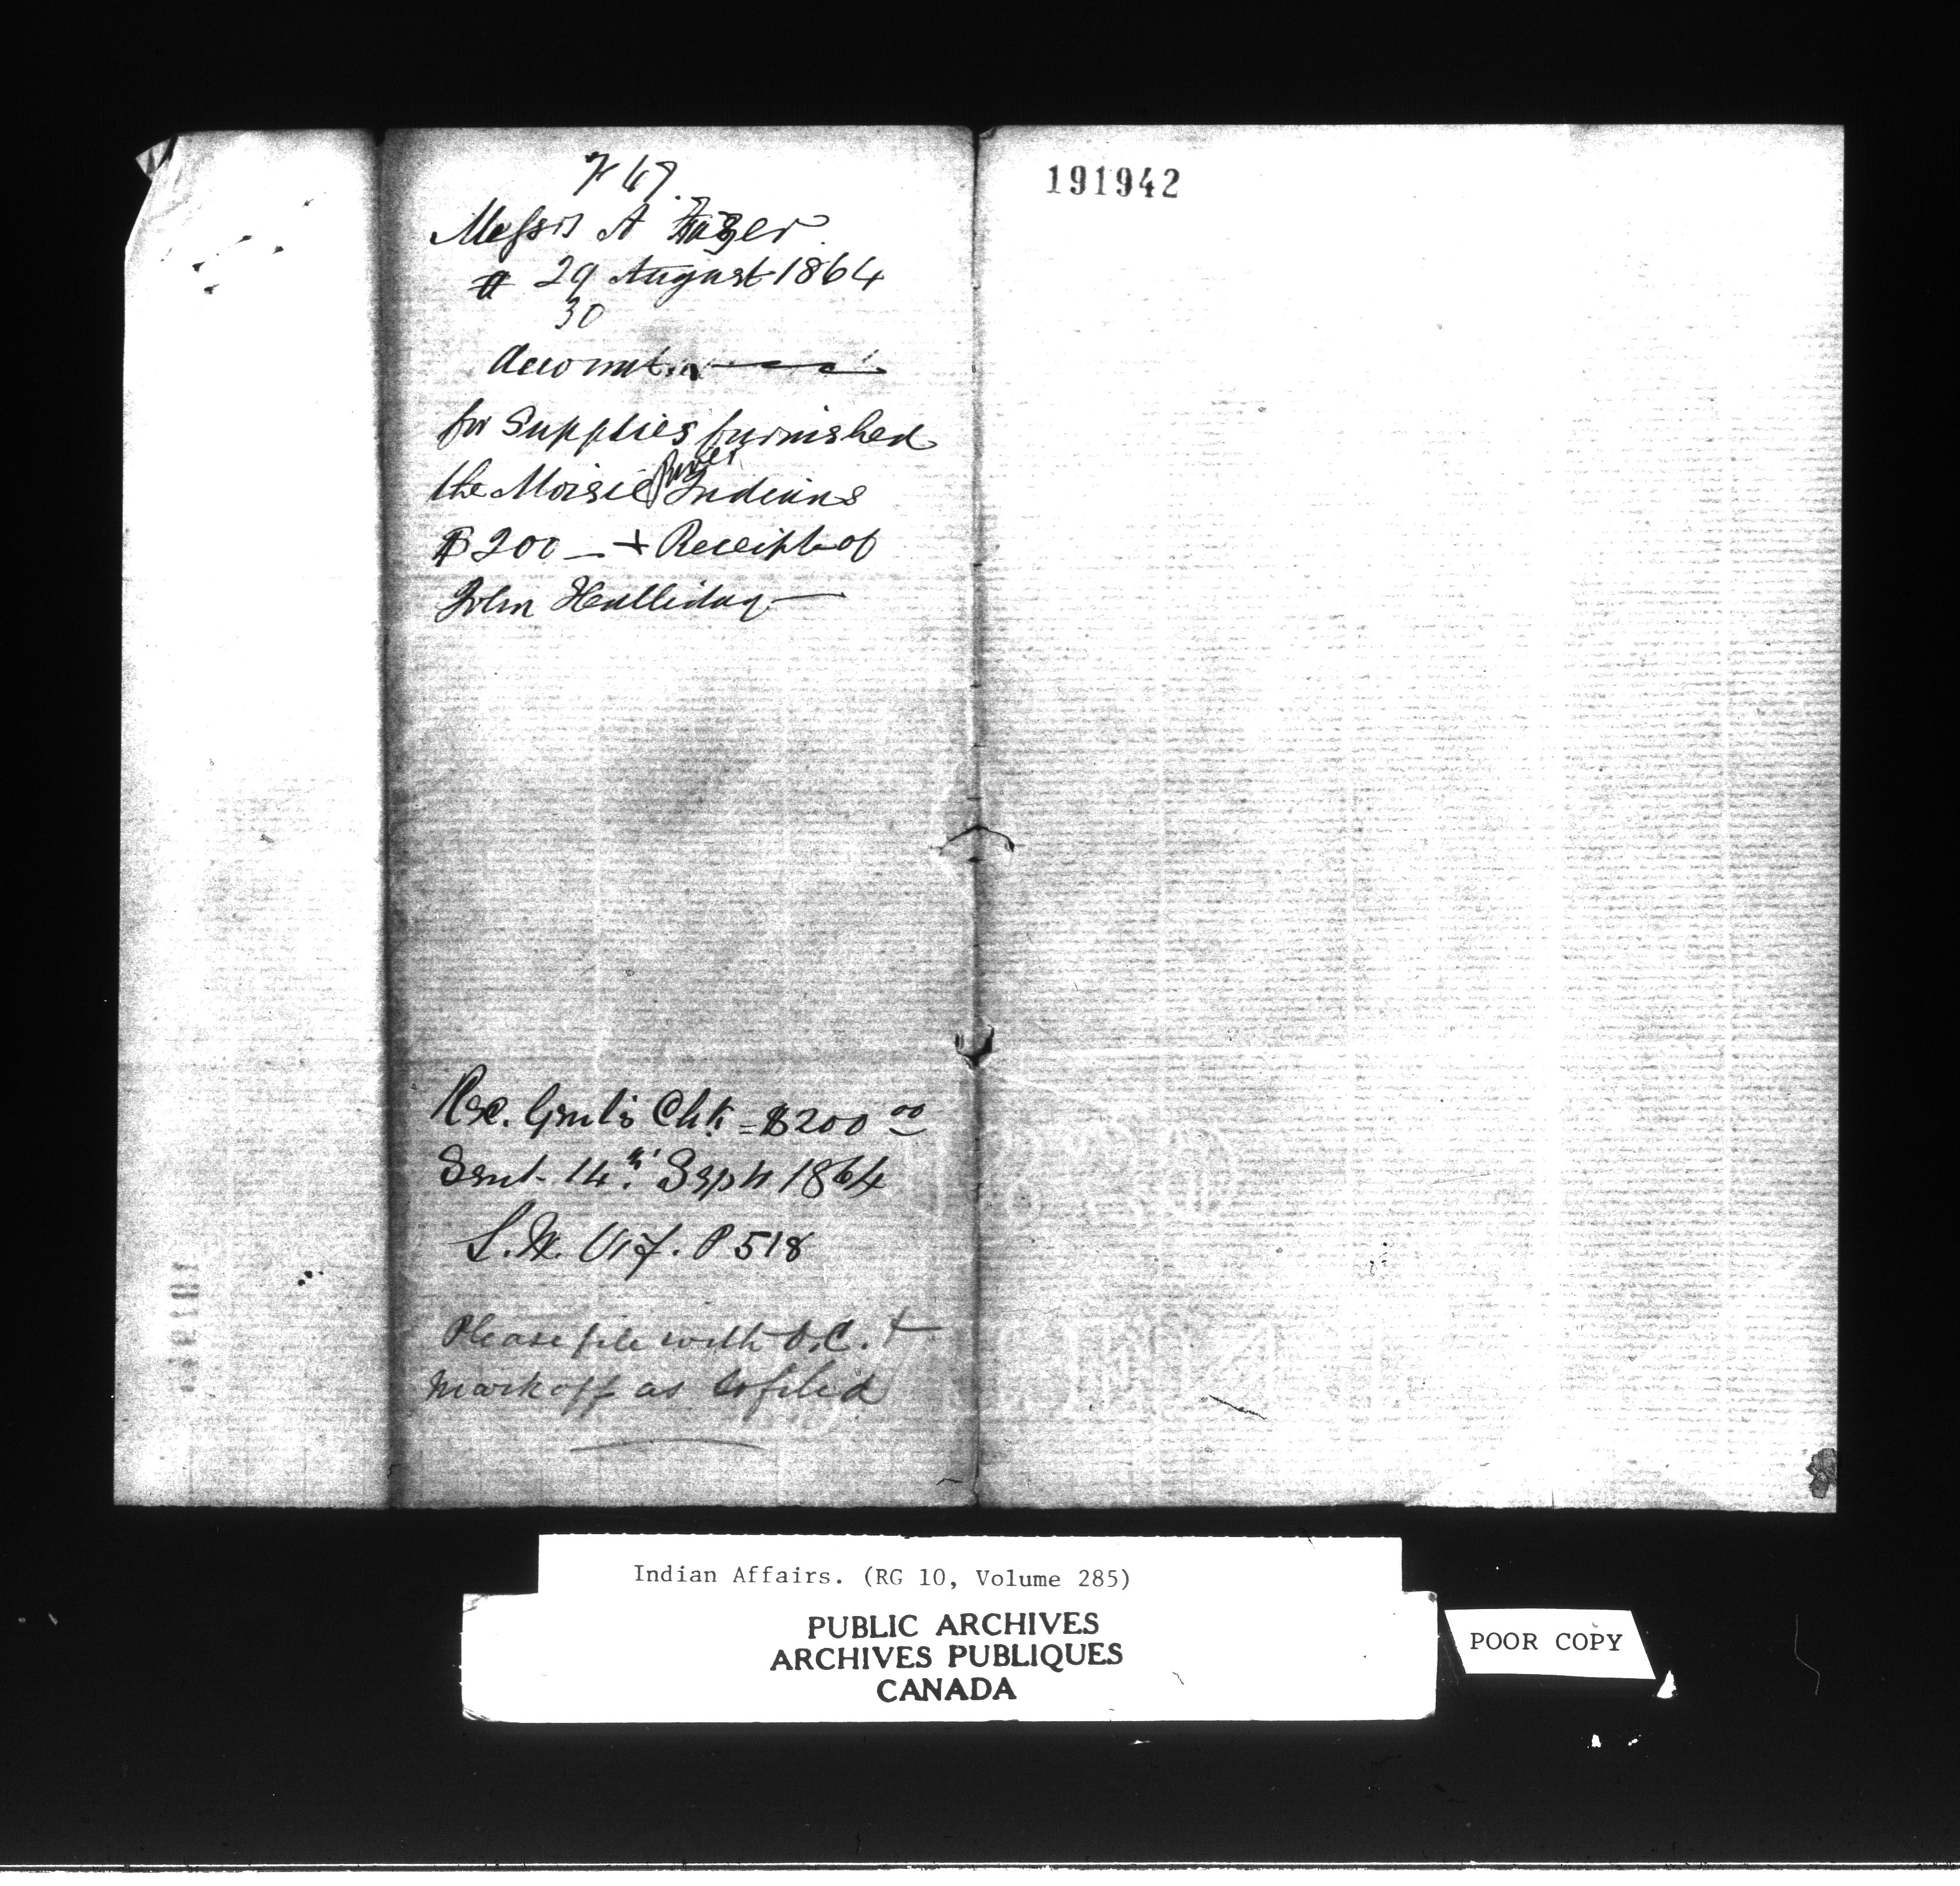 Messrs A Fraser
29 August 1864
30
Account
for Supplies furnished
the Moisic River Indians
$200 — + Receipt of
John Halliday —
Rec. Genl's Chk = $200 00
Sent 14th Sept 1864
P 518
Please file with O.C. +
mark off as so filed
191942
Indian Affairs. (RG 10, Volume 285)
PUBLIC ARCHIVES
ARCHIVES PUBLIQUES
CANADA
POOR COPY